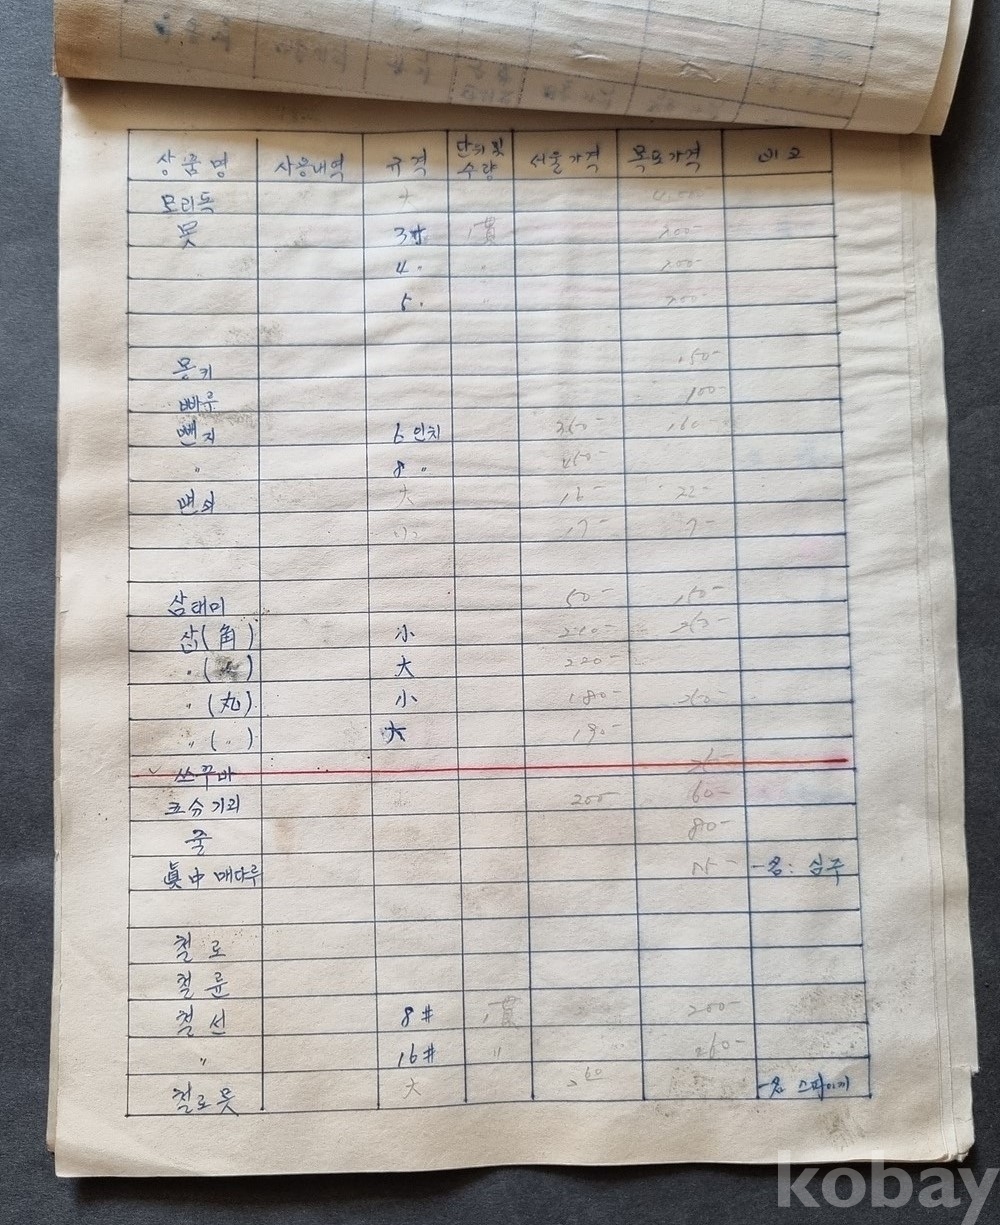 상품명 사용내역 규격 단위 및 수량 서울가격 목포가격 비고
모리독 大
못 3# 1貫 200-
〃 4 〃 〃 200-
5 〃 〃 200-
몽키 150-
빠루 100-
뺀치 6인치 360- 160-
〃 8 〃 450-
뺀취 大 16- 22-
小 17- 7-
삼태미 50- 150-
삽(角) 小 220- 260-
〃(〃) 大 220-
〃(丸) 小 180- 260-
〃(〃) 大 190-
쓰꾸바
코슈기리 200- 60-
줄 80-
眞中 매다루 一名: 심주
철로
철륜
철선 8# 1貫 200-
〃 16# 〃 260-
철로못 大 260 一名 스파이크
kobay